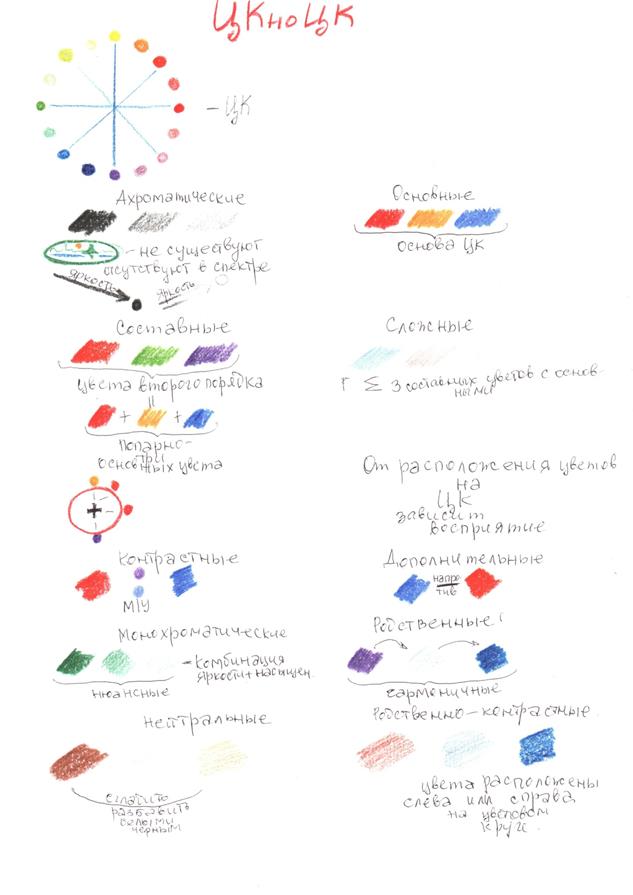 ЦКноЦК
– ЦК
Ахроматические
– не существуют
отсутствуют в спектре
яркость
яркость
Основные
основа ЦК
Составные
цвета второго порядка
=
+ +
попарно-
три
основных цвета
Сложные
Г Σ 3 составных цветов с основ-
ными
+
От расположения цветов
на
ЦК
зависит
восприятие
Контрастные
М/У
Дополнительные
напро
тив
Монохроматические
– комбинация
яркости+насыщен.
нюансные
Родственные
гармоничные
Нейтральные
сгладить
разбавить
белыми
черным
Родственно-контрастные.
цвета расположены
слева или справа
на цветовом
круге.